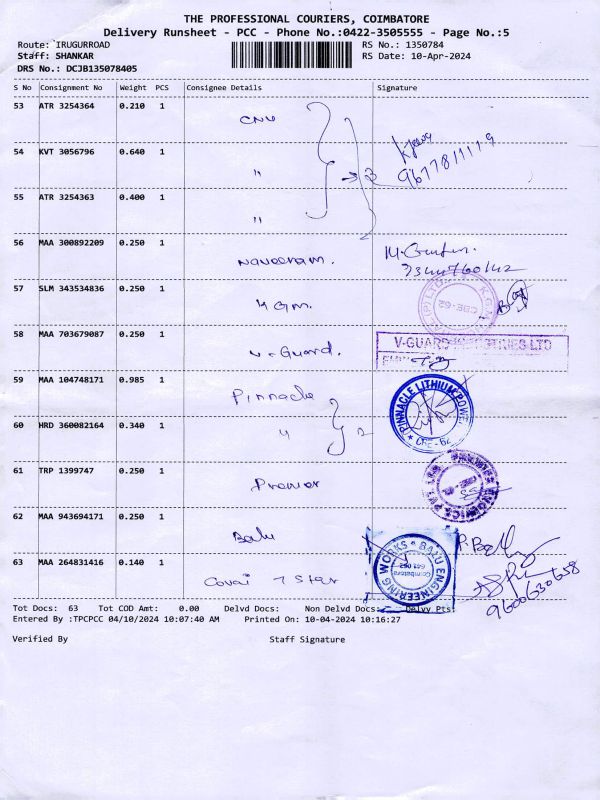 THE PROFESSIONAL COURIERS, COIMBATORE
Delivery Runsheet - PCC - Phone No.:0422-3505555 - Page No.:5
Route: IRUGURROAD RS No.: 1350784
Staff: SHANKAR RS Date: 10-Apr-2024
DRS No.: DCJB135078405
S No Consignment No Weight PCS Consignee Details Signature
53 ATR 3254364 0.210 1
CNU
9677811119
54 KVT 3056796 0.640 1
"
3
55 ATR 3254363 0.400 1
"
56 MAA 300892209 0.250 1
57 SLM 343534836 0.250 1
KGM.
CBE-62
58 MAA 703679087 0.250 1
V-Guard.
V-GUARD INDUSTRIES LTD
59 MAA 104748171 0.985 1
Pinnacle
PINNACLE LITHIUM POWER
CBE-62
60 HRD 360082164 0.340 1
"
2
61 TRP 1399747 0.250 1
Premier
62 MAA 943694171 0.250 1
Balu
BALU ENGINEERING WORKS
Coimbatore
641 062
63 MAA 264831416 0.140 1
Covai 7 Star
9600630658
Tot Docs: 63 Tot COD Amt: 0.00 Delvd Docs: Non Delvd Docs: Delvy Pts:
Entered By :TPCPCC 04/10/2024 10:07:40 AM Printed On: 10-04-2024 10:16:27
Verified By Staff Signature